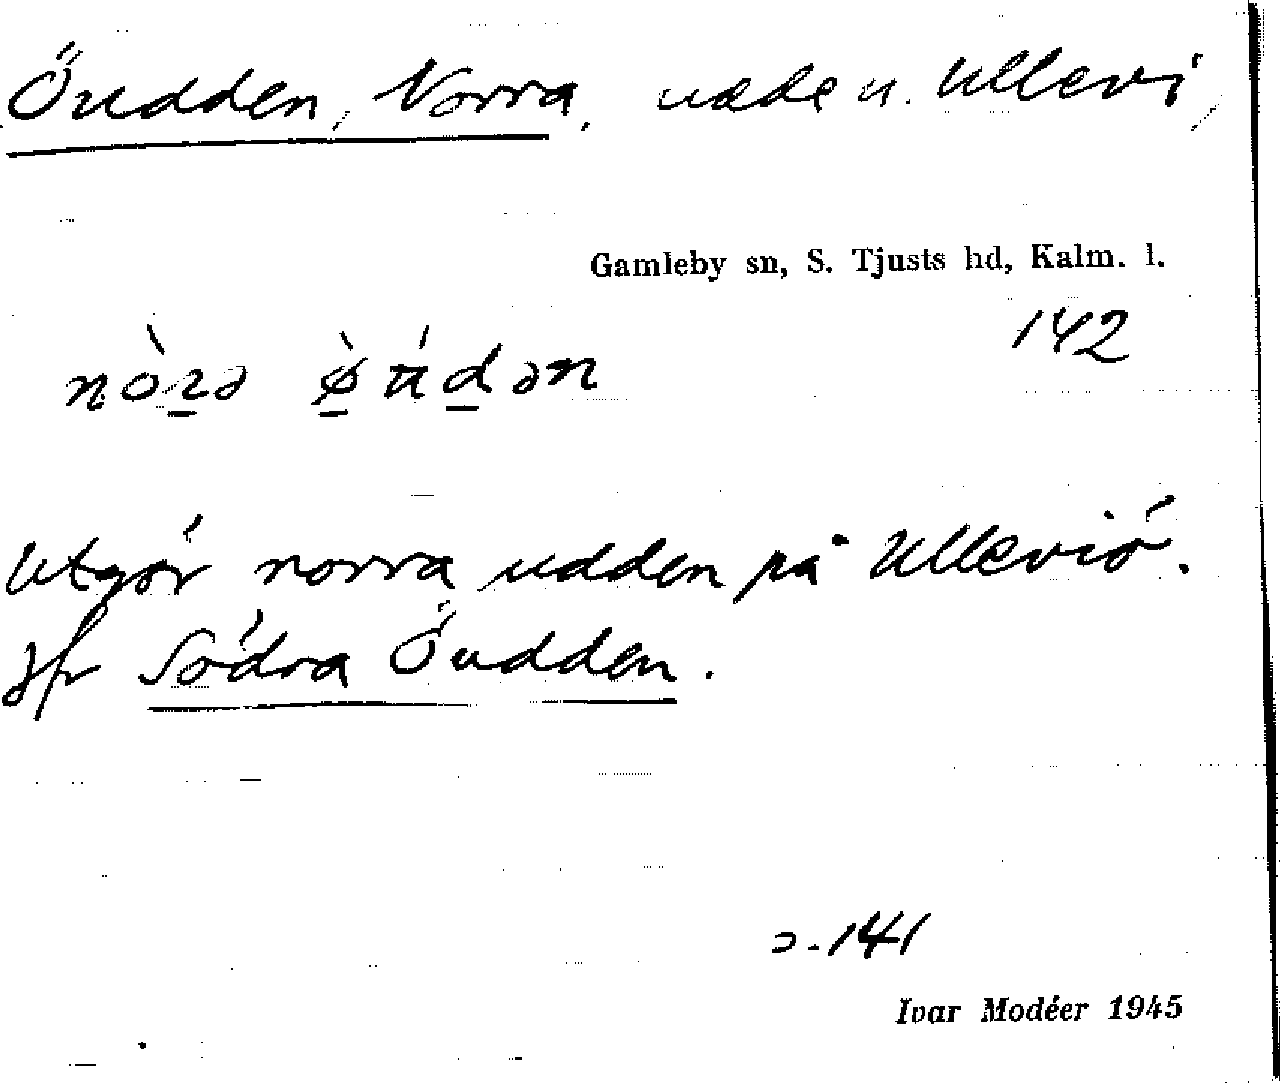 Öudden, Norra, udde u. Ullevi,
Gamleby sn, S. Tjusts hd, Kalm. l.
142
Utgör norra udden på Ulleviö.
Jfr Södra Öudden.
141
Ivar Modéer 1945